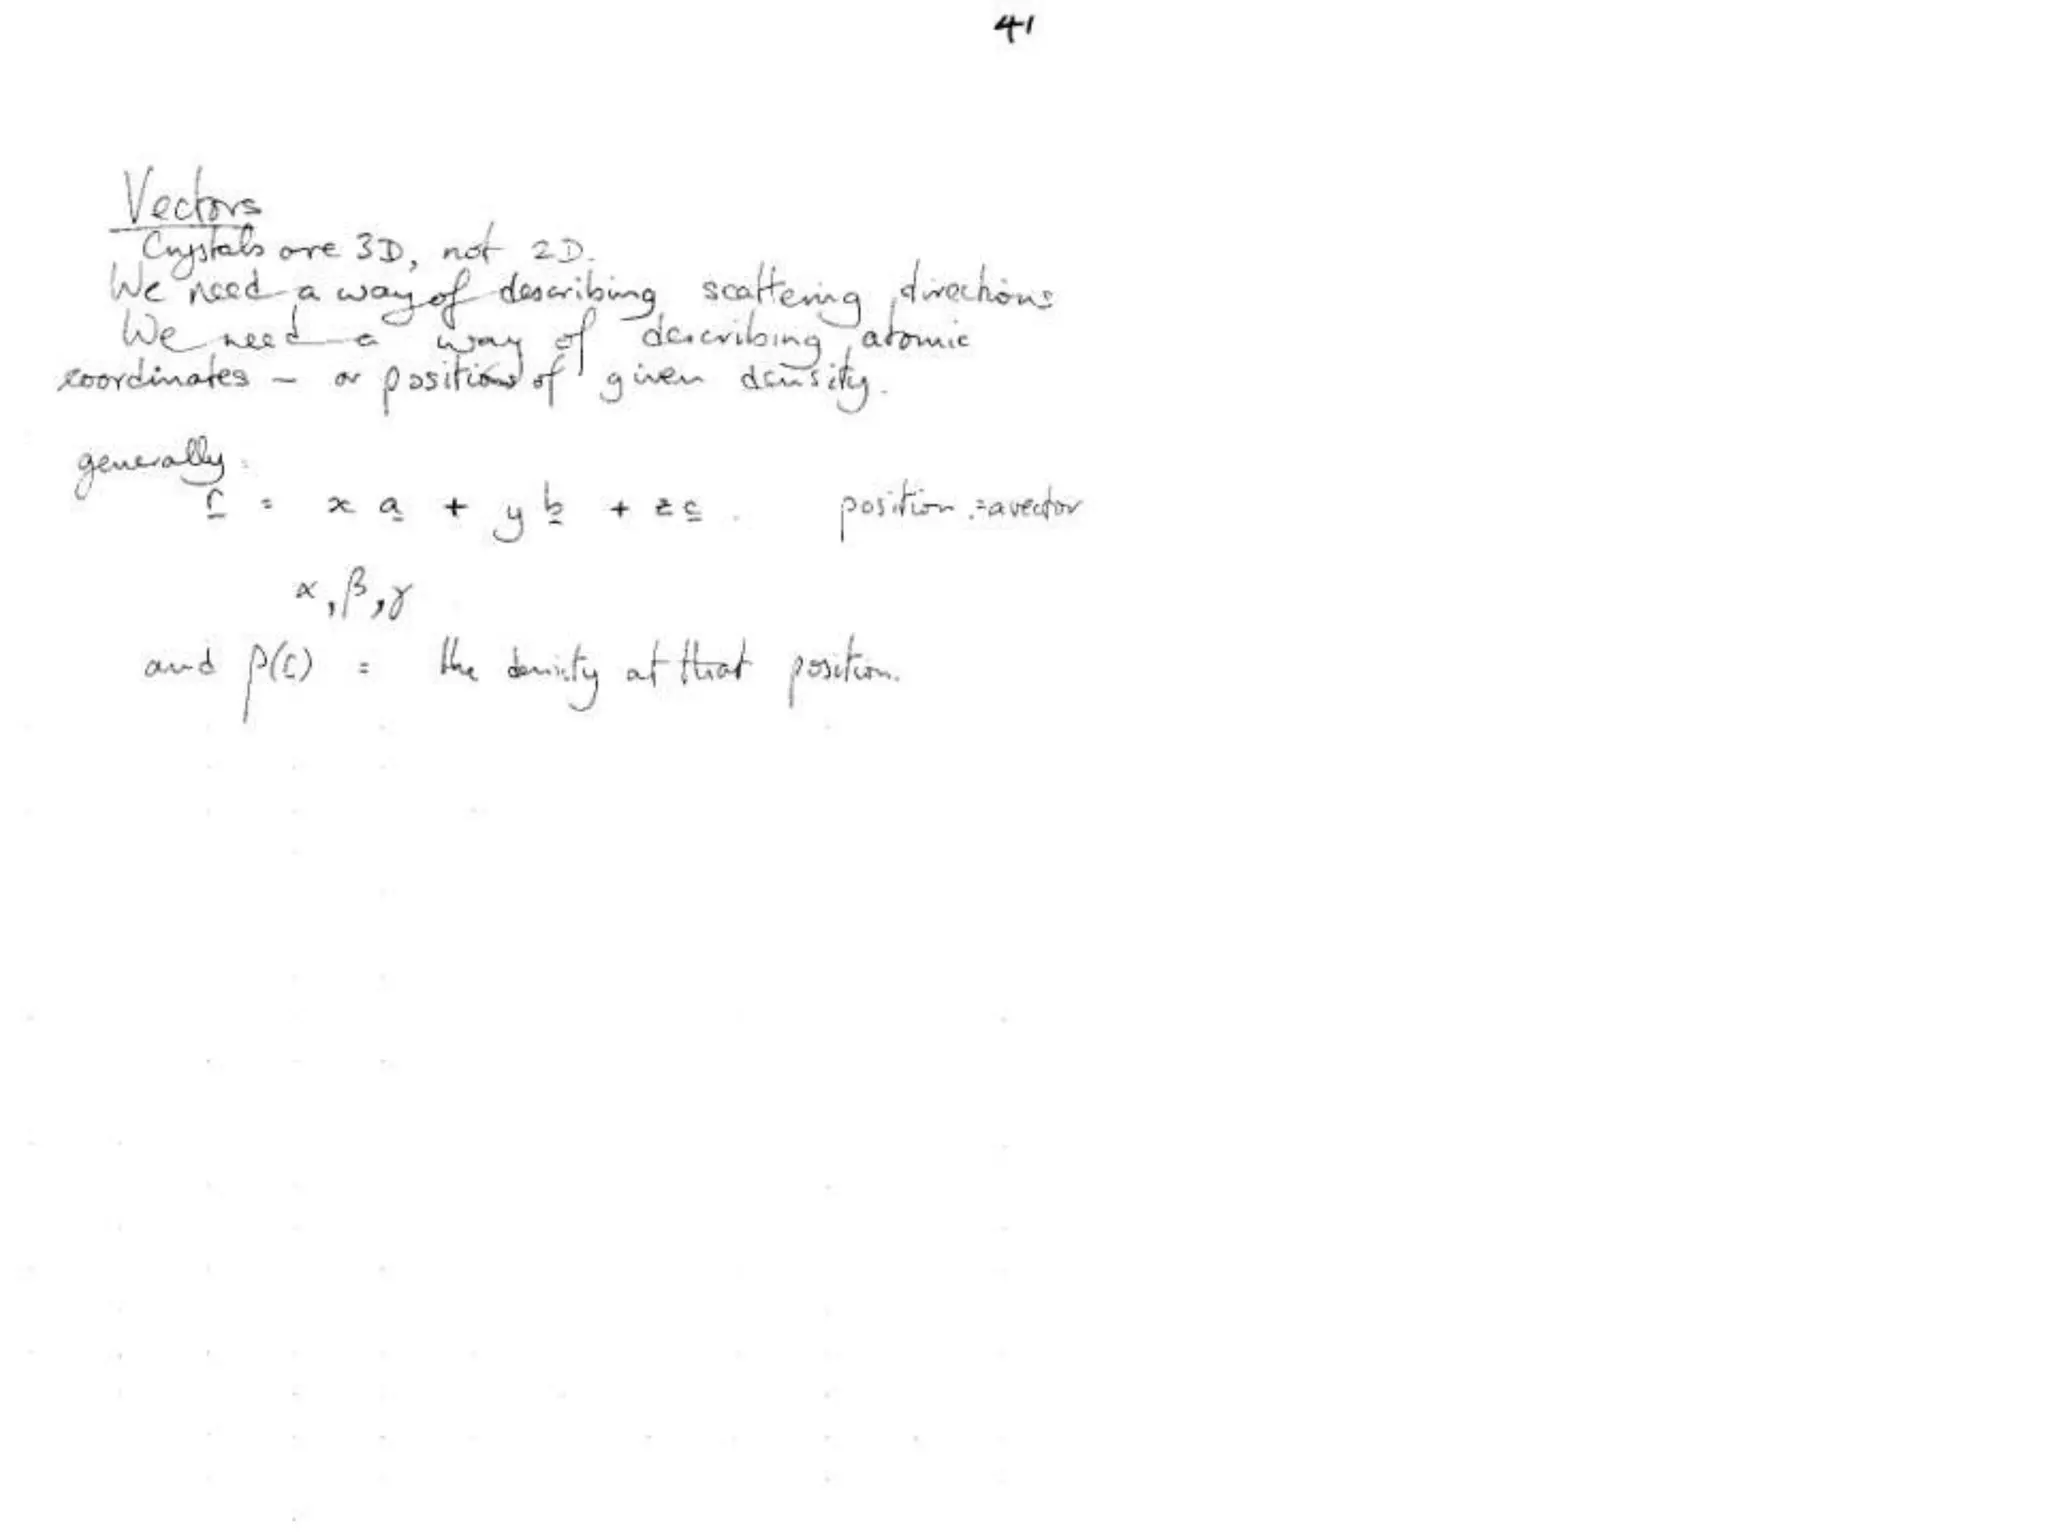 41
Vectors
Crystals are 3D, not 2D.
We need a way of describing scattering directions
We need a way of describing atomic
coordinates - or positions of given density.
generally:
r = x a + y b + z c . position = a vector
α, β, γ
and ρ(r) = the density at that position.